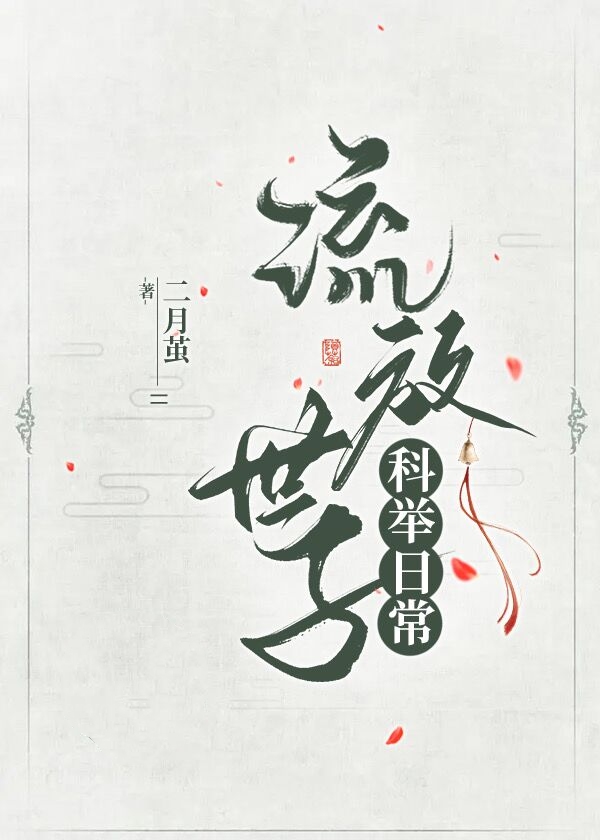 流放
世子
科举日常
二月茧
著